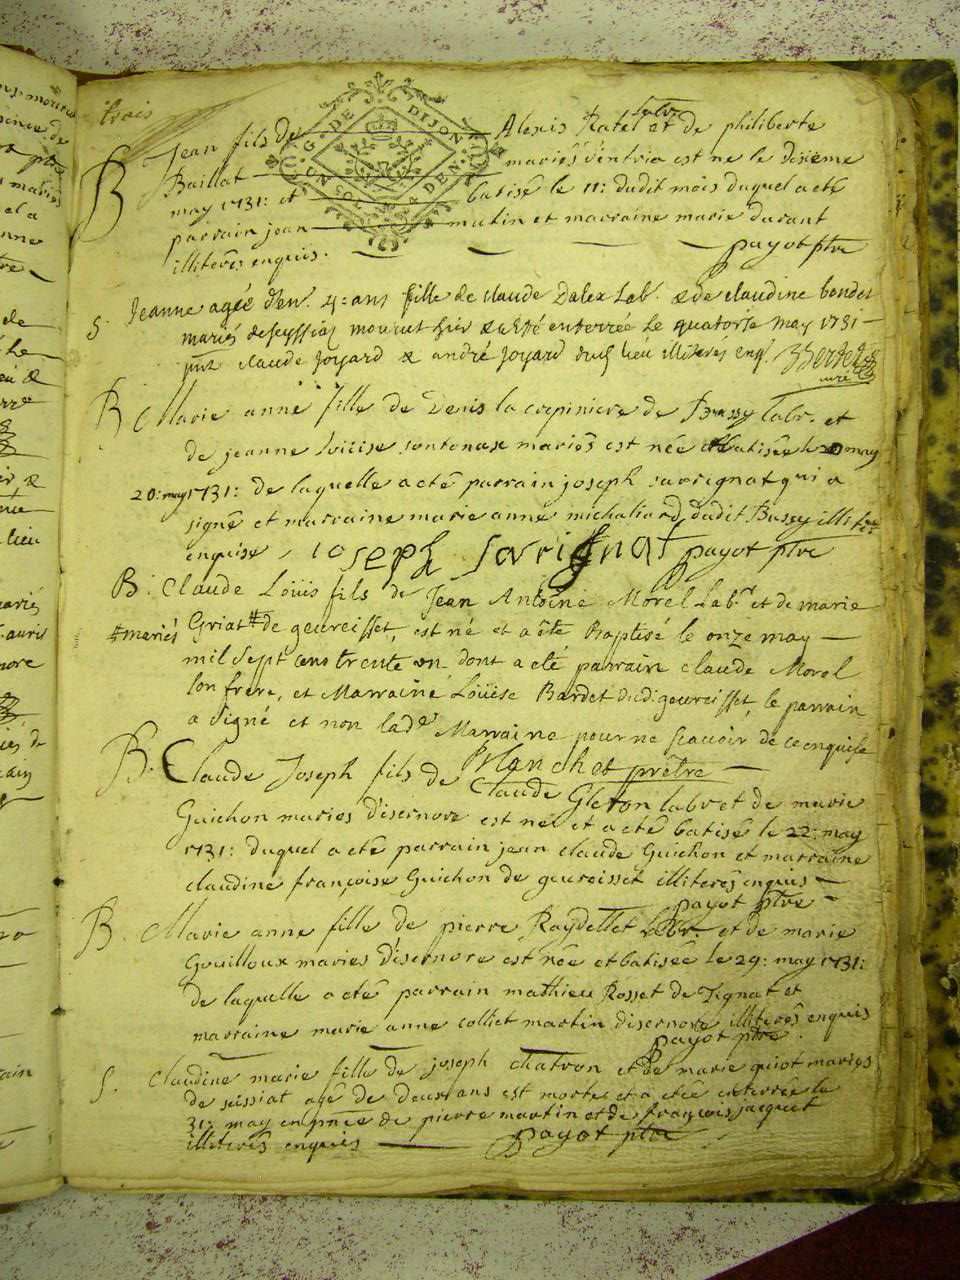 trois
B Jean fils de Alexis Ratel labr et de philiberte
Baillat mariés d'entria est ne le dixieme
may 1731: et batisé le 11: dudit mois duquel a eté
parrain jean mutin et marraine marie durant
illiterés enquis. payot ptre
GDE DIJON
S. Jeanne agée d'en. 4: ans fille de claude Dalex Lab. & de claudine bondet
mariés de seyssiaz mourut hier & a été enterrée le quatorze may 1731
pnt claude Joyard & andré Joyard dud. lieu illiterés enq.
curé
B Marie anne fille de Denis la corpiniere de Bussy labr. et
de jeanne loüise mariés est née et batisée le 20 may
20: may 1731: de laquelle a eté parrain joseph savrignat qui a
signé et marraine marie anne michaliard dudit Bussy illit.res
enquise joseph savrignat payot ptre
B. Claude Loüis fils de Jean Antoine Morel Labr et de marie
#mariés Griat # de geureisset, est né et a été Baptisé le onze may
mil sept cens trente un dont a eté parrain claude Morel
son frere, et Marraine Loüise Bardet dud. geureisset, le parrain
a signé et non lade Marraine pour ne scavoir de ce enquise
Blanchet prêtre
B. Claude Joseph fils de Claude Gleton labr et de marie
Guichon mariés d'isernore est né et a eté batisé le 22: may
1731: duquel a eté parrain jean claude Guichon et marraine
claudine françoise Guichon de geureisset illiterés enquis
payot ptre
B. Marie anne fille de pierre Raydellet labr. et de marie
Gouilloux mariés d'isernore est née et batisée le 29: may 1731:
de laquelle a eté parrain mathieu Rosset de Tignat et
marraine marie anne colliet martin d'isernore illiterés enquis
payot ptre.
S. Claudine marie fille de joseph chatron et de marie quiot mariés
de seissiat agé de deux ans est morte et a eté enterrée le
31: may en pnce de pierre martin et de françois jacquet
illiterés enquis payot ptre